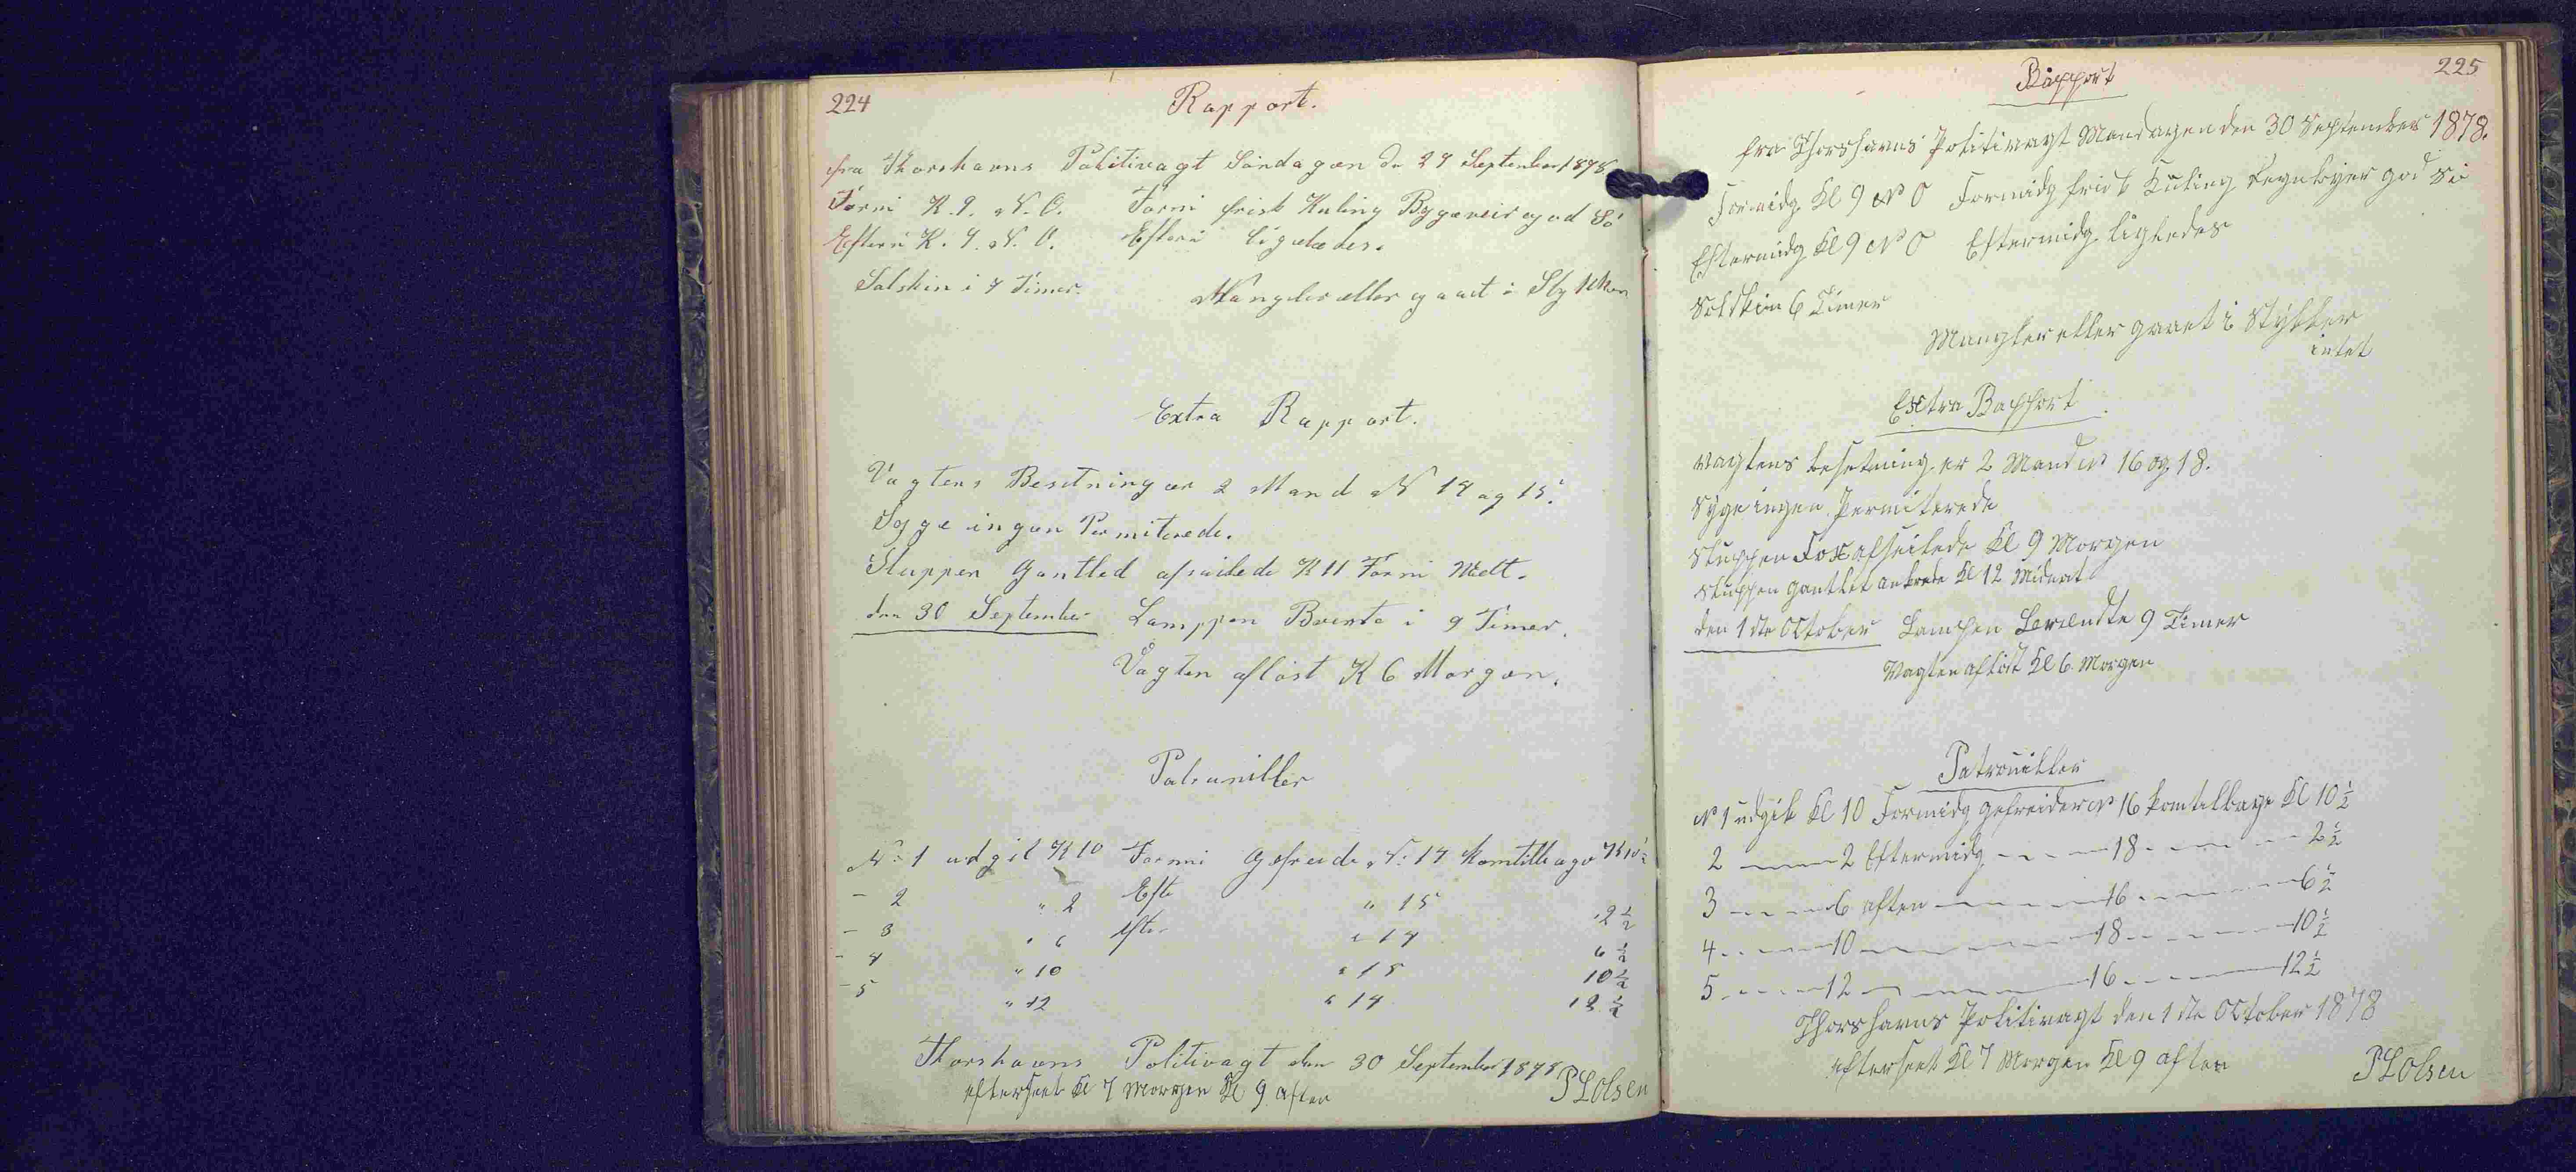 224
Rapport.
fra Thorshavns Politivagt Søndagen den 29 September 1878
Formi K. 9. N. O. Formi frisk Kuling Bygeveir og god Sø
Efterm K. 9. N. O. Efterm ligeledes.
Solskin i 7 Timer.
Mangler eller gaaet i Stykker
Extra Rapport.
Vagtens Besetning er 2 Mand N 14 og 15.
Syge ingen Permiterede.
Sluppen Gantled afseilede K 11 Formi
den 30 September Lamppen Brente i 9 Timer.
Vagten afløst K 6 Morgen.
Patrouiller
No 1 udgik K 10 Formi Gefreide N: 14 komtilbage K 10 ½
- 2 " 2 Efte " 15 2 ½
- 3 " 6 efte " 14 6 ½
- 4 " 10 " 15 10 ½
- 5 " 12 " 14 12 ½
Thorshavns Politivagt den 30 September 1878
efterseet Kl 7 Morgen Kl 9 aften PLOlsen
225
Rapport
fra Thorshavns Politivagt Mandagen den 30 September 1878.
Formidg Kl 9 N O Formidg frist Kuling Regnbyer god Sø
Eftermidg Kl 9 N O Eftermidg ligledes
Solskin 6 Timer
Mangler eller gaaet i Stykker
intet
Extra Rapport
Vagtens besetning er 2 Mand No 16 og 18.
Syge ingen Permiterede
Sluppen Fox afseilede Kl 9 Morgen
Sluppen Gantlet ankrede Kl 12 Midnat
den 1ste October Lampen Brendte 9 Timer
Vagten afløst Kl 6 Morgen
Patrouiller
No 1 udgik Kl 10 Formidg gefreider No 16 komtilbage Kl 10 ½
2 2 Eftermidg 18 2 ½
3 6 aften 16 6 ½
4 10 18 10 ½
5 12 16 12 ½
Thorshavns Politivagt den 1ste October 1878
efterseet Kl 7 Morgen Kl 9 aften PLOlsen